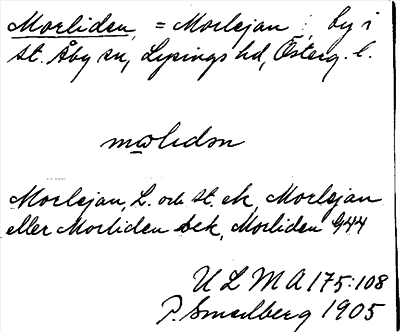 Morliden, = Morlejan, by i
St. Åby sn, Lysings hd, Österg. l.
Morlejan, L. och St. ek, Morlejan
eller Morliden sek, Morliden 944
ULMA 175:108
P. Smedberg 1905